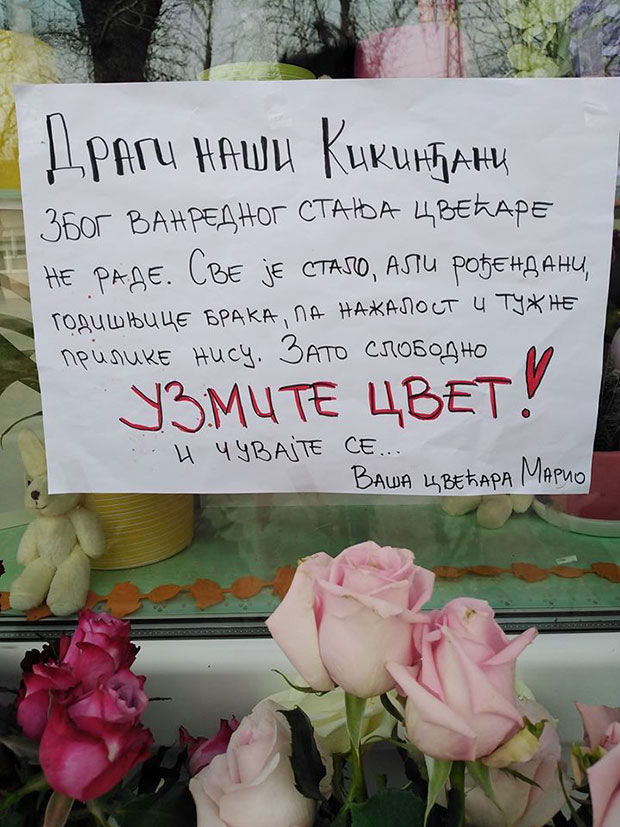 Драги наши Кикинђани
због ванредног стања цвећаре
не раде. Све је стало, али рођендани,
годишњице брака, па нажалост и тужне
прилике нису. Зато слободно
УЗМИТЕ ЦВЕТ!
и чувајте се...
Ваша цвећара Марио